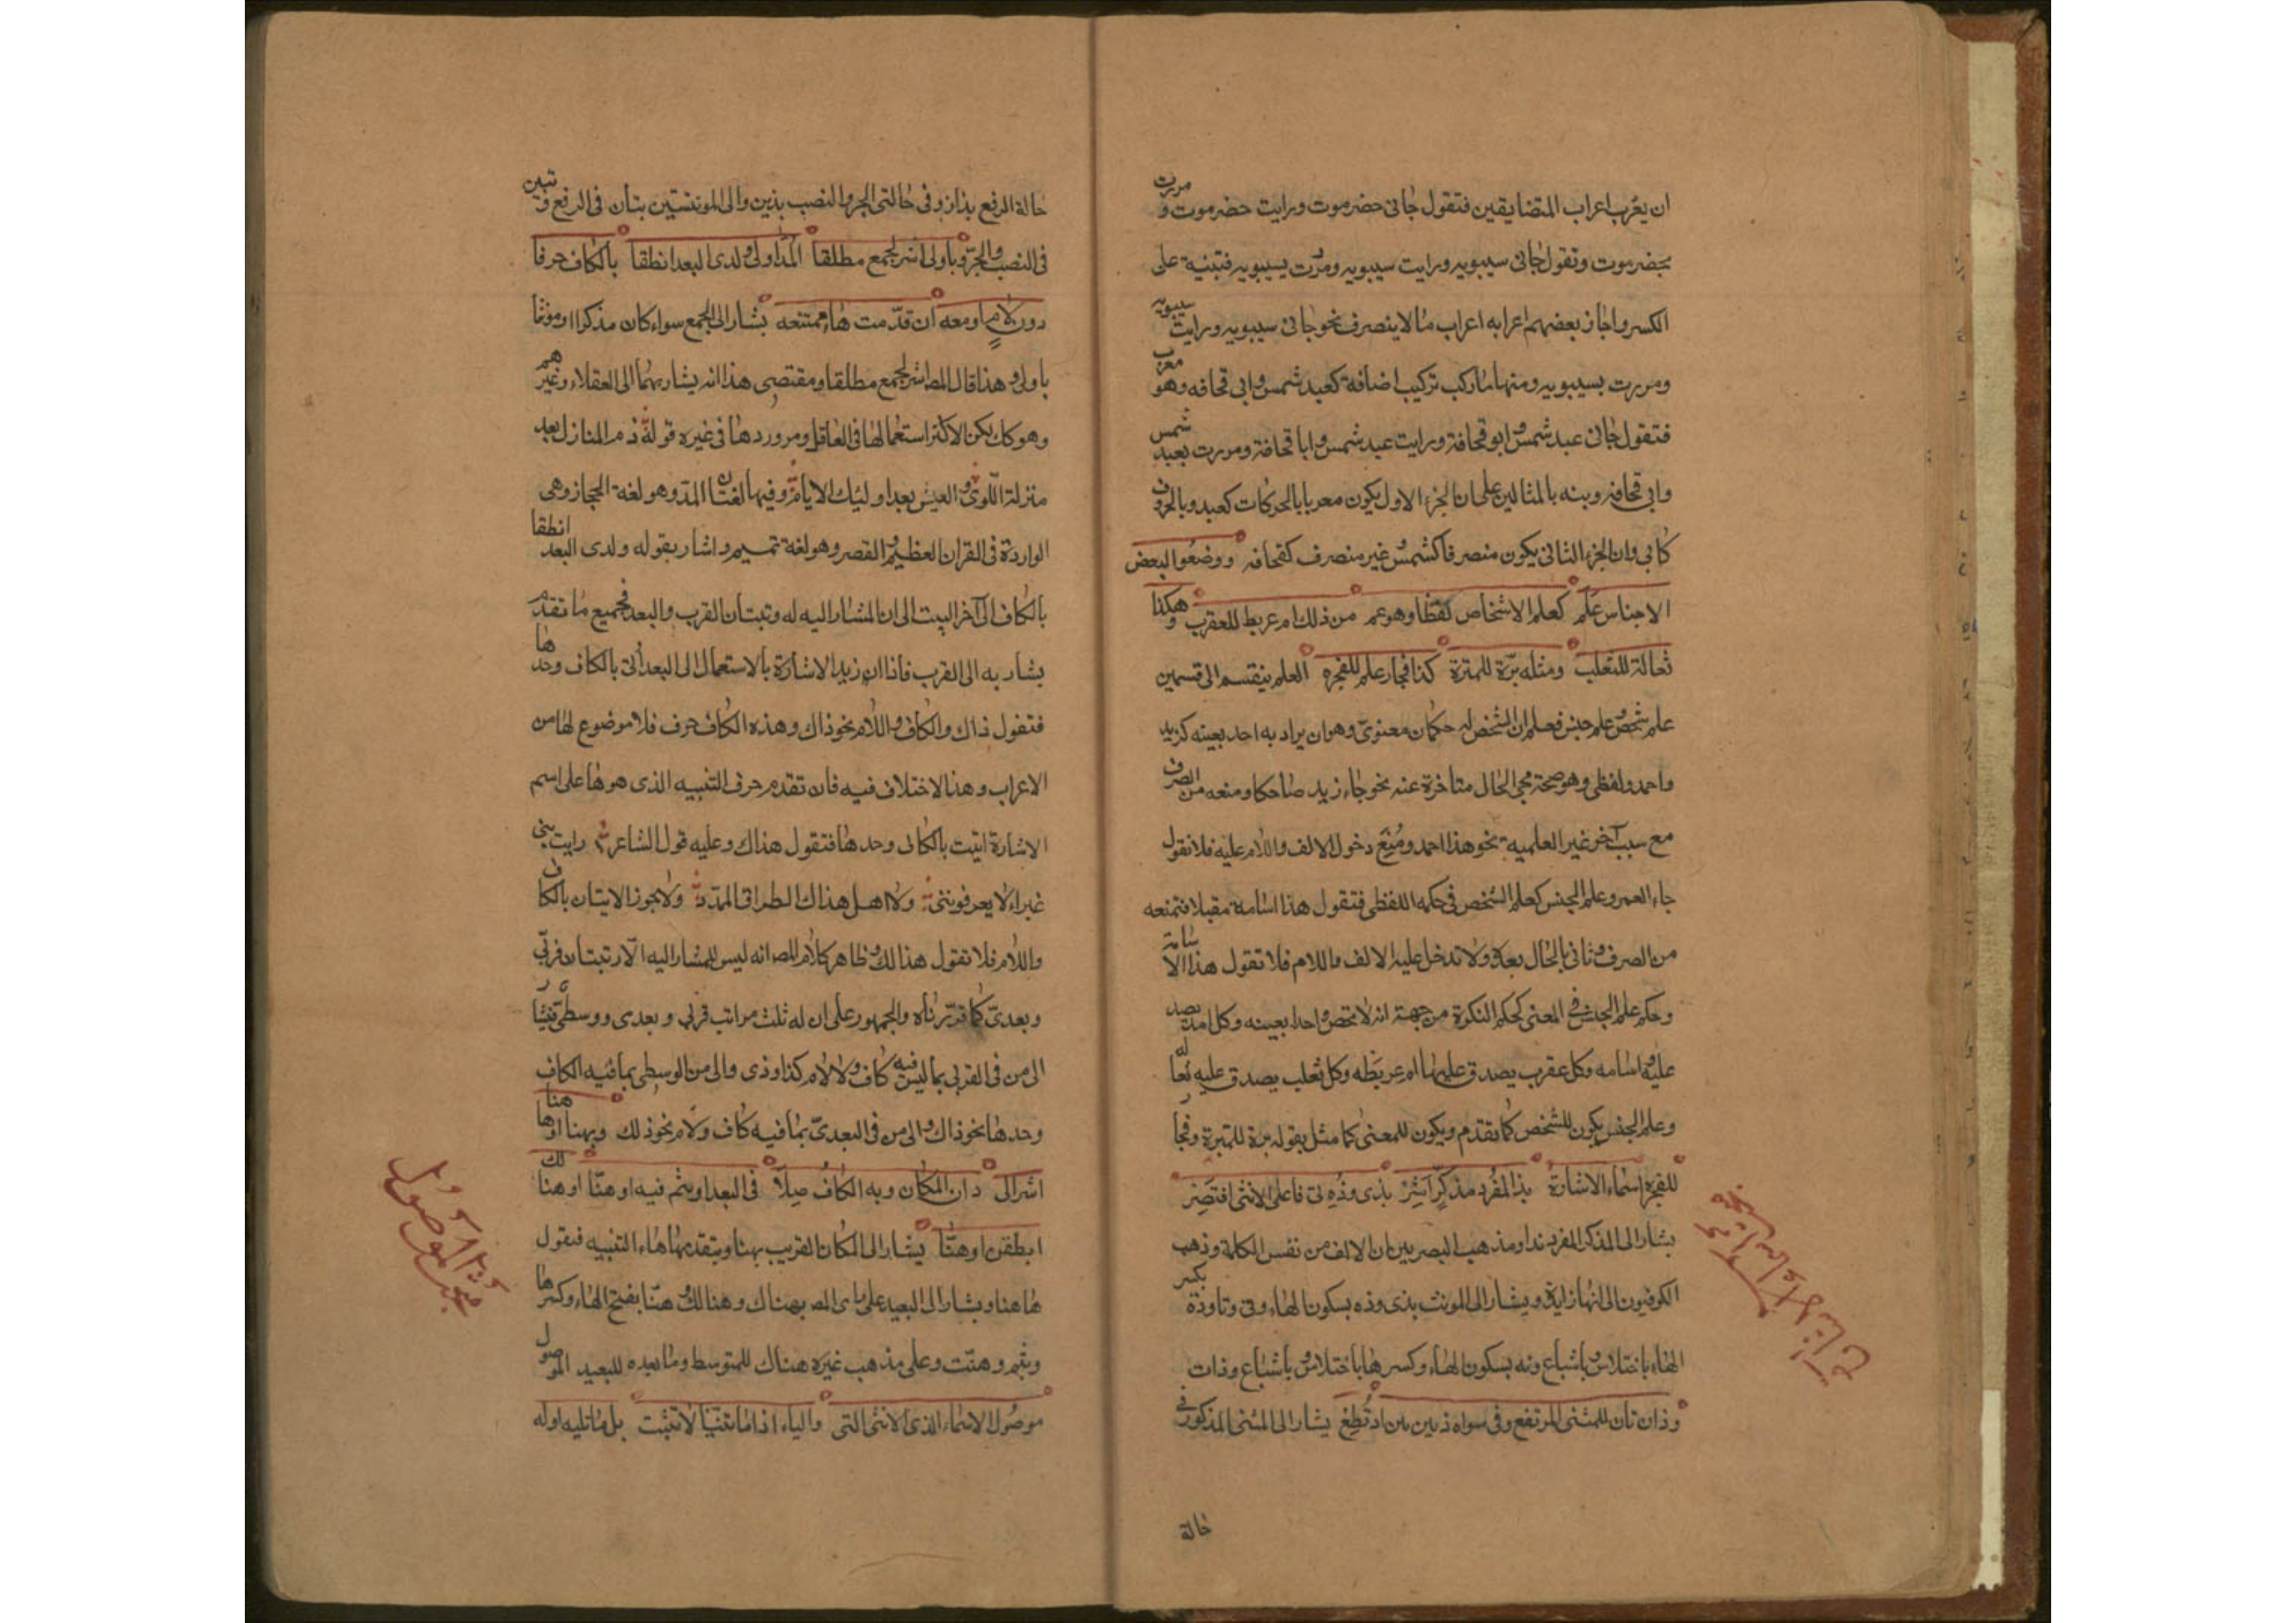 ان يعرب اعراب المتضايفين فتقول جانى حضرموت ورايت حضرموت و مررت
بحضرموت وتقول جانى سيبويه ورايت سيبويه ومررت بسيبويه فتبنيه على
الكسر واجاز بعضهم اعرابه اعراب ما لا ينصرف نحو جانى سيبويه ورايت سيبويه
ومررت بسيبويه ومنها ما ركب تركيب اضافة كعبد شمس وابى قحافه وهو معرب
فتقول جانى عبد شمس وابو قحافة ورايت عبد شمس وابا قحافة ومررت بعبد شمس
وابى قحافه ونبه بالمثالين على ان الجزء الاول يكون معربا بالحركات كعبد وبالحروف
كابى وان الجزء الثانى يكون منصرفا كشمس وغير منصرف كقحافه ووضعوا لبعض
الاجناس علم كعلم الاشخاص لفظا وهو عم من ذلك ام عريط للعقرب وهكذا
ثعالة للثعلب ومثله برّة للمبرة كذا فجار علم للفجره العلم ينقسم الى قسمين
علم شخص وعلم جنس فعلم الشخص له حكمان معنوى وهو ان يراد به احد بعينه كزيد
واحمد ولفظى وهو صحة مجى الحال متاخرة عنه نحو جاء زيد ضاحكا ومنعه من الصرف
مع سبب آخر غير العلمية نحو هذا احمد ومُنِعَ دخول الالف واللام عليه فلا تقول
جاء العمر وعلم الجنس كعلم الشخص فى حكمه اللفظى فتقول هذا اسامة مقبلا فتمنعه
من الصرف وتاتى بالحال بعده ولا تدخل عليه الالف واللام فلا تقول هذا الاسامة
وحكم علم الجنس فى المعنى كحكم النكرة من جهة انه لا يخص واحدا بعينه وكل اسد يصد
عليه اسامه وكل عقرب يصدق عليها ام عريطه وكل ثعلب يصدق عليه ثعاله
وعلم الجنس يكون للشخص كما تقدم ويكون للمعنى كما مثل بقوله برة للمبرة وفجار
للفجره اسماء الاشارة بذا المفرد مذكّرٍ اَشِرْ بذى وذِه تى تا على الانثى اقتَصِر
يشار الى المذكر المفرد بذا ومذهب البصريين ان الالف من نفس الكلمة وذهب
الكوفيون الى انها زايدة ويشار الى المونث بذى وذه بسكون الهاء وتى وتا وذة بكسر
الهاء باختلاس وباشباع وته بسكون الهاء وكسرها باختلاس وباشباع وذات
وذان تان للمثنى المرتفع وفى سواه ذين تين اذ تُطِعْ يشار الى المثنى المذكور فى
حالة
حالة الرفع بذان وفى حالتى الجر والنصب بذين والى المونثتين بتان فى الرفع وتين
فى النصب والجرّ وبأولى اشر لجمع مطلقا المد اولى ولدى البعد انطقا بالكاف حرفا
دون لامٍ او معه ان قدّمت ها ممتنعه يشار الى الجمع سواء كان مذكرا او مونثا
باولى ولهذا قال المص اشر لجمع مطلقا ومقتضى هذا انه يشار بهما الى العقلاء وغيرهم
وهو كك لكن الاكثر استعمالها فى العاقل ومن ورودها فى غيره قوله ذم المنازل بعد
منزلة اللّوى والعيش بعد اوليك الايام وفيها لغتان المد وهو لغة الحجاز وهى
الواردة فى القران العظيم والقصر وهو لغة تميم واشار بقوله ولدى البعد انطقا
بالكاف الى آخر البيت الى ان المشار اليه له رتبتان القرب والبعد فجميع ما تقدم
يشار به الى القرب فاذا ان زيد الاشارة بالاستعمال الى البعد اُتى بالكاف وحدها
فتقول ذاك والكاف واللام نحو ذاك وهذه الكاف حرف فلا موضوع لها من
الاعراب وهذا لا اختلاف فيه فان تقدم حرف التنبيه الذى هو ها على اسم
الاشارة اتيت بالكاف وحدها فتقول هذاك وعليه قول الشاعر رايت بنى
غبراء لا يعرفوننى ولا اهل هذاك الطراف الممدد ولا يجوز الاتيان بالكاف
واللام فلا تقول هذالك وظاهر كلام المص انه ليس للمشار اليه الّا رتبتان قربى
وبعدىّ كما قرّرناه والجمهور على ان له ثلث مراتب قربى وبعدى ووسطى فيشار
الى من فى القربى بما ليس فيه كاف ولا لام كذا وذى والى من الوسطى بما فيه الكاف
وحدها نحو ذاك والى من فى البعدىّ بما فيه كاف ولام نحو ذلك وبهنا او ها هنا
اشر الى دان المكان وبه الكاف صِلَا فى البعد او بثم فُه او هنّا او هنالك
انطقن او هنّا يشار الى المكان القريب بهنا ويتقدمها هاء التنبيه فتقول
ها هنا ويشار الى البعيد على راى المص بهناك وهنالك وهنّا بفتح الهاء وكسرها
وبثم وهنّت وعلى مذهب غيره هناك للمتوسط وما بعده للبعيد الموصول
موصول الاسماء الذى الانثى التى والياء اذا ما ثنّيا لا تثبت بل ما تليه اوله
مبحث الموصول